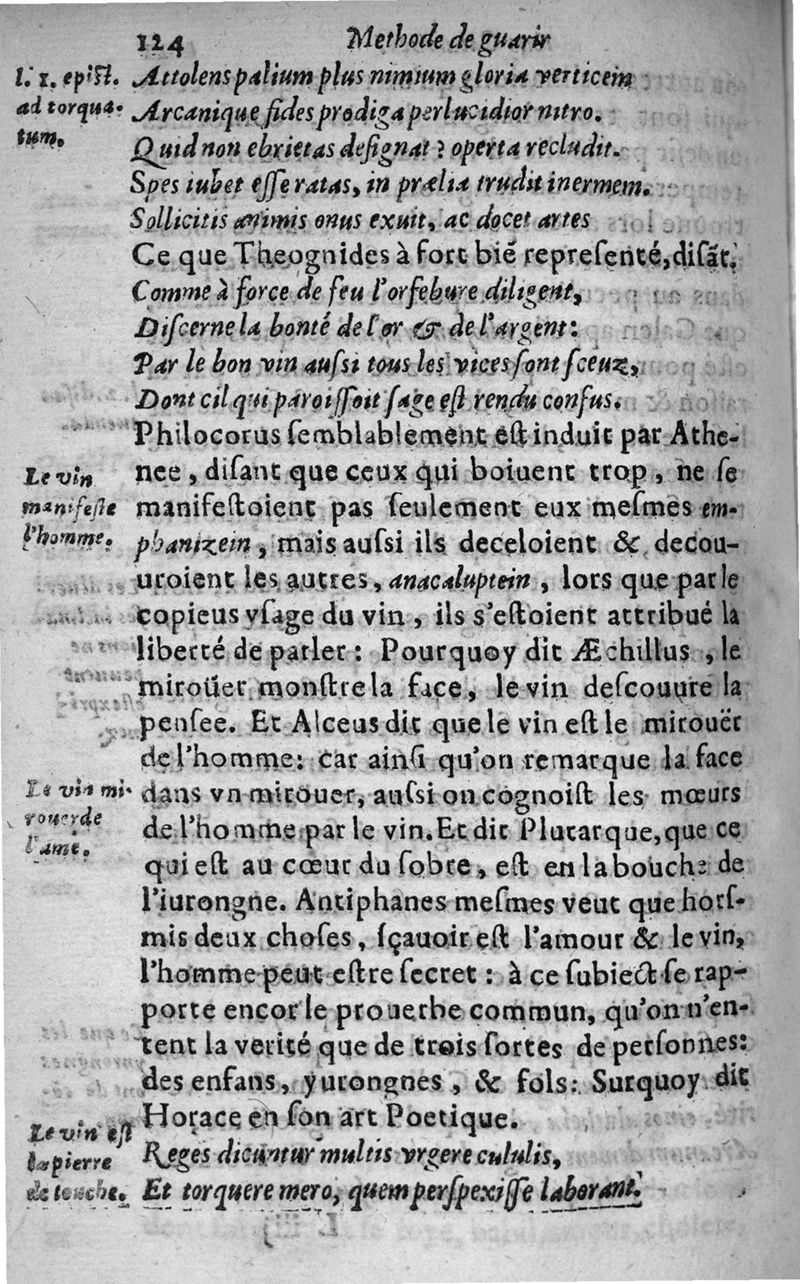 124 Methode de guarir
l. 1. epist.
ad torqua-
tum.
Attolens palium plus nimium gloria verticem
Arcanique fides prodiga perlucidior nitro.
Quid non ebrietas designat ? operta recludit.
Spes iubet esse ratas, in prælia trudit inermem.
Sollicitis animis onus exuit, ac docet artes
Ce que Theognides à fort biē representé, disāt.
Comme à force de feu l'orfebure diligent,
Discerne la bonté de l'or & de l'argent:
Par le bon vin aussi tous les vices sont sceuz,
Dont cil qui paroissoit sage est rendu confus.
Philocorus semblablement est induit par Athe-
Le vin
manifeste
l'homme.
nee, disant que ceux qui boiuent trop, ne se
manifestoient pas seulement eux mesmes em-
phanizein, mais aussi ils deceloient & decou-
uroient les autres, anacaluptein, lors que par le
copieus vsage du vin, ils s'estoient attribué la
liberté de parler: Pourquoy dit Æchillus, le
miroüer monstre la face, le vin descouure la
pensee. Et Alceus dit que le vin est le mirouër
de l'homme: car ainsi qu'on remarque la face
Le vin mi-
rouer de
l'ame.
dans vn mirouer, aussi on cognoist les mœurs
de l'homme par le vin. Et dit Plutarque, que ce
qui est au cœur du sobre, est en la bouche de
l'iurongne. Antiphanes mesmes veut que hors-
mis deux choses, sçauoir est l'amour & le vin,
l'homme peut estre secret : à ce subiect se rap-
porte encor le prouerbe commun, qu'on n'en-
tent la verité que de trois sortes de personnes:
des enfans, yurongnes, & fols: Surquoy dit
Horace en son art Poetique.
Le vin est
la pierre
de touche.
Reges dicuntur multis vrgere cululis,
Et torquere mero, quem perspexisse laborant.